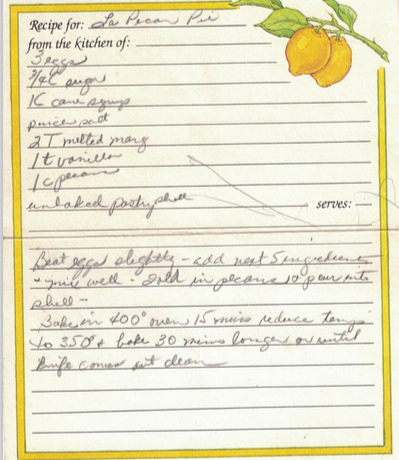 Recipe for: La Pecan Pie
from the kitchen of:
3 eggs
3/4 C sugar
1C cane syrup
pinch salt
2T melted marg
1t vanilla
1c pecans
unbaked pastry shell
serves:
Beat eggs slightly - add next 5 ingredients
& mix well - Fold in pecans & pour into
shell -
Bake in 400° oven 15 mins reduce temp
to 350° & bake 30 mins longer or until
knife comes out clean